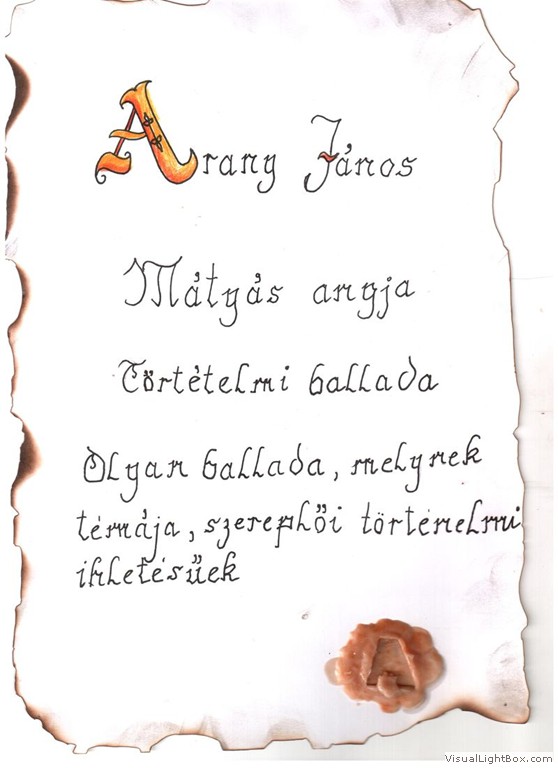 Arany János
Mátyás anyja
Törtételmi ballada
Olyan ballada, melynek
témája, szereplői történelmi
ihletésűek
VisualLightBox.com